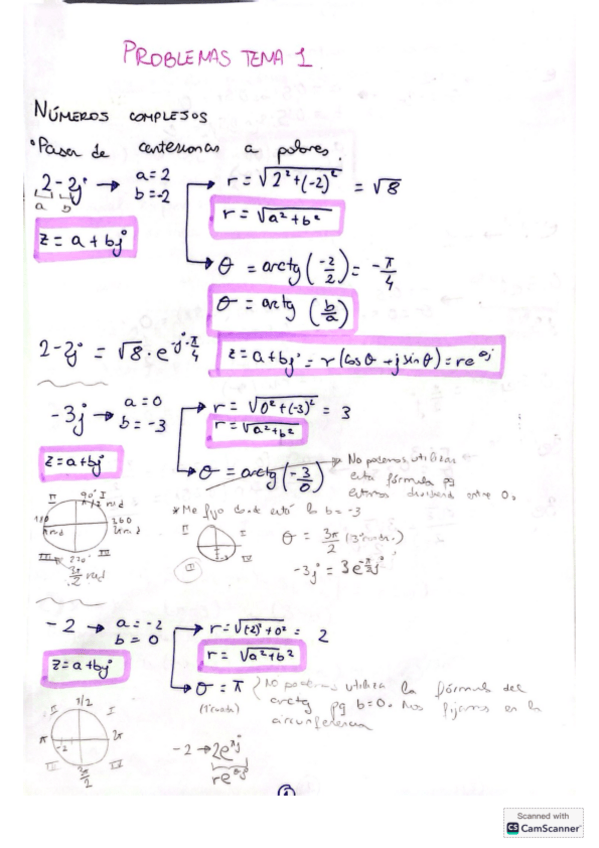 PROBLEMAS TEMA 1
NÚMEROS COMPLEJOS
Pasar de cartesianas a polares.
2-2j → a=2 b=-2 → r = √2²+(-2)² = √8
a b
r = √a²+b²
z = a+bj
θ = arctg (-2/2) = -π/4
θ = arctg (b/a)
2-2j = √8 · e^-j·π/4
z = a+bj = r(cosθ + j sinθ) = re^θj
-3j → a=0 b=-3 → r = √0²+(-3)² = 3
r = √a²+b²
z = a+bj
θ = arctg(-3/0) → No podemos utilizar
esta fórmula pq
estamos dividiendo entre 0.
* Me fijo donde está la b=-3
90° I
II π/2 rad
180 360
π rad 2π rad
III 270° IV
3π/2 rad
II I
IV
①
θ = 3π/2
-3j = 3e^-π/2 j
-2 → a=-2 b=0 → r = √(-2)²+0² = 2
r = √a²+b²
z = a+bj
θ = π No podemos utiliza la fórmula del
arctg pq b=0. Nos fijamos en la
circunferencia
π/2
II I
π -2 2π
III IV
3π/2
-2 → 2e^πj
re^θj
Scanned with
CS CamScanner